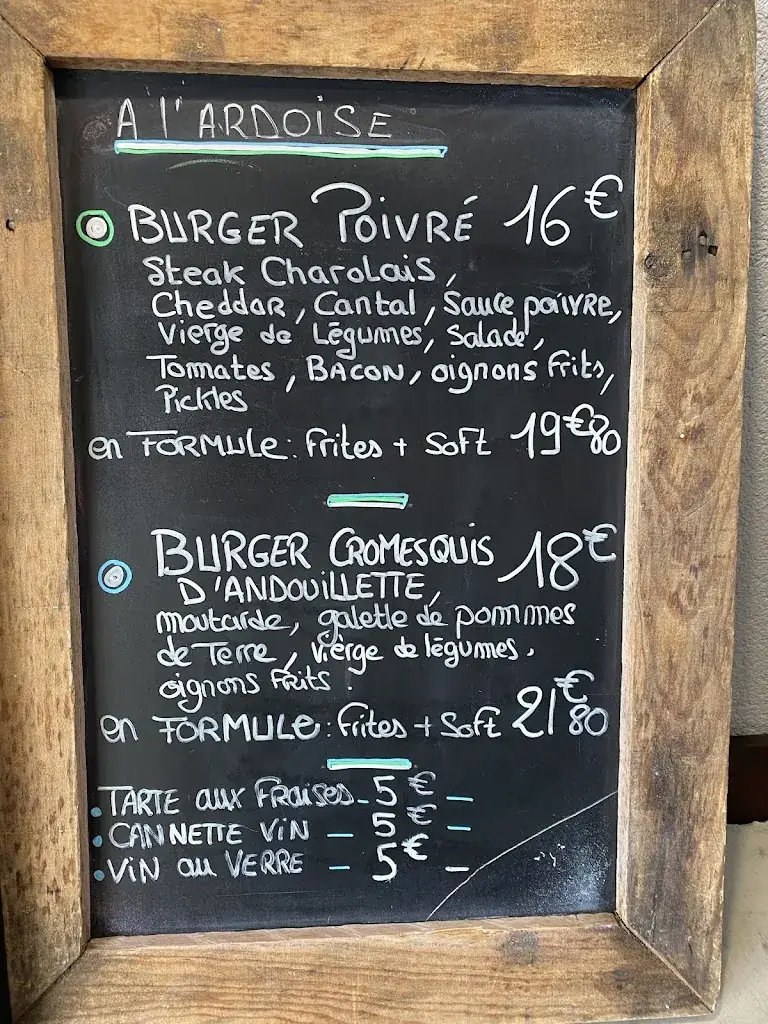 A l'ARDOISE
BURGER POIVRÉ 16€
Steak Charolais,
Cheddar, Cantal, Sauce poivre,
Vierge de Légumes, Salade,
Tomates, BACON, oignons frits,
Pickles
en FORMULE: Frites + Soft 19€80
BURGER CROMESQUIS 18€
D'ANDOUILLETTE,
moutarde, galette de pommes
de Terre, Vierge de légumes,
oignons frits.
en FORMULE: Frites + Soft 21€80
• TARTE aux FRAISES - 5€ -
• CANNETTE VIN - 5€ -
• VIN au VERRE - 5€ -